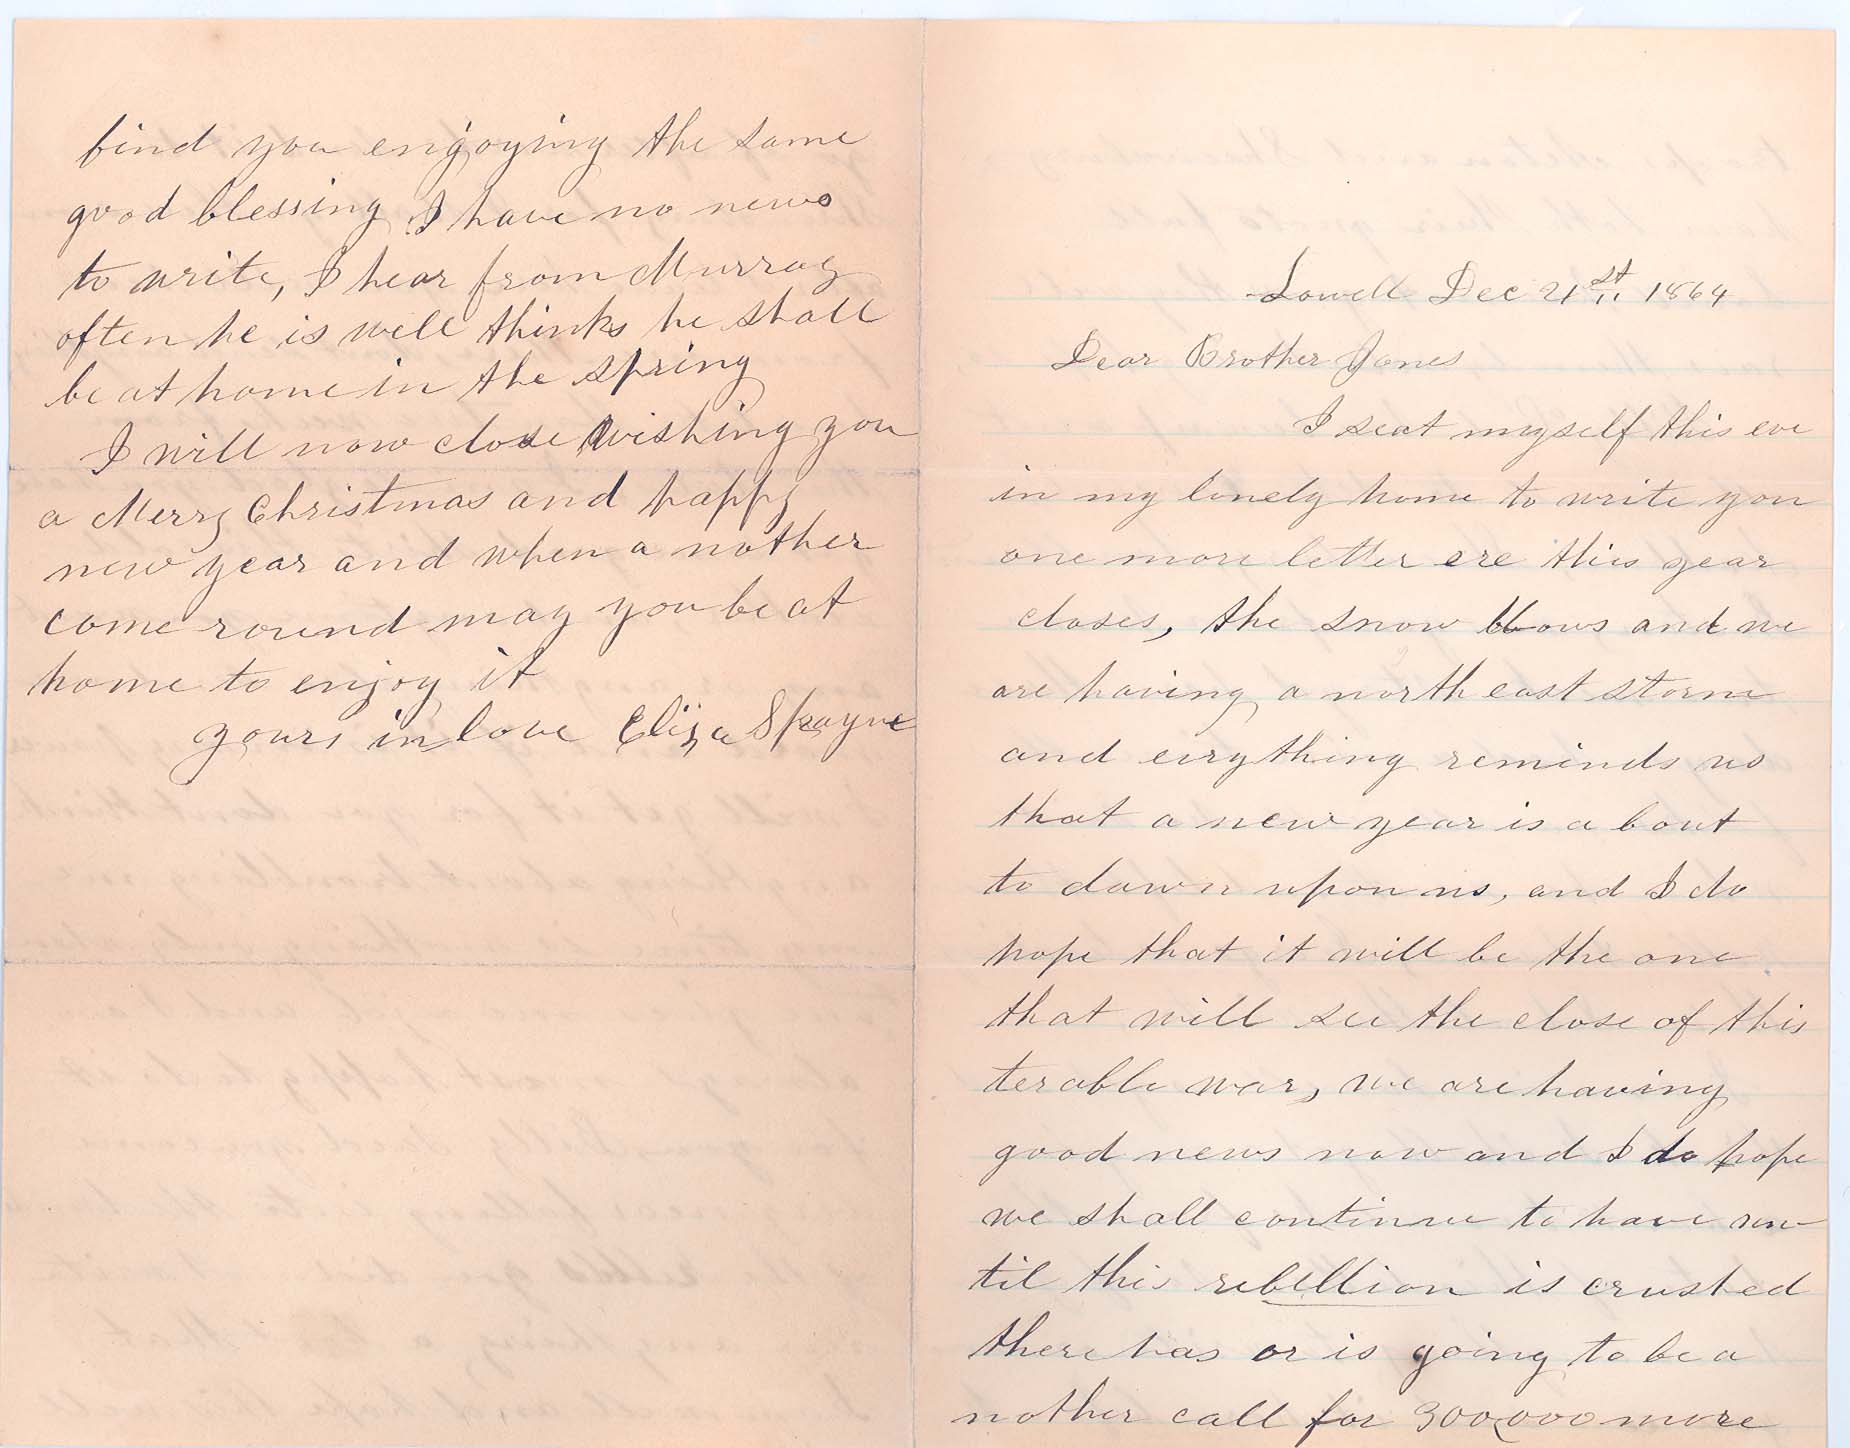 Lowell Dec 21st 1864
Dear Brother Jones
I seat myself this eve
in my lonely home to write you
one more letter ere this year
closes, the snow blows and we
are having a north east storm
and evrything reminds us
that a new year is a bout
to dawn upon us, and I do
hope that it will be the one
that will see the close of this
terable war, we are having
good news now and I do hope
we shall continue to have un
til this rebellion is crushed
there has or is going to be a
nother call for 300,000 more
find you engoying the same
good blessing I have no news
to write, I hear from Murray
often he is well thinks he shall
be at home in the spring
I will now close wishing you
a Merry Christmas and happy
new year and when a nother
come round may you be at
home to enjoy it
yours in love Eliza Sprayne